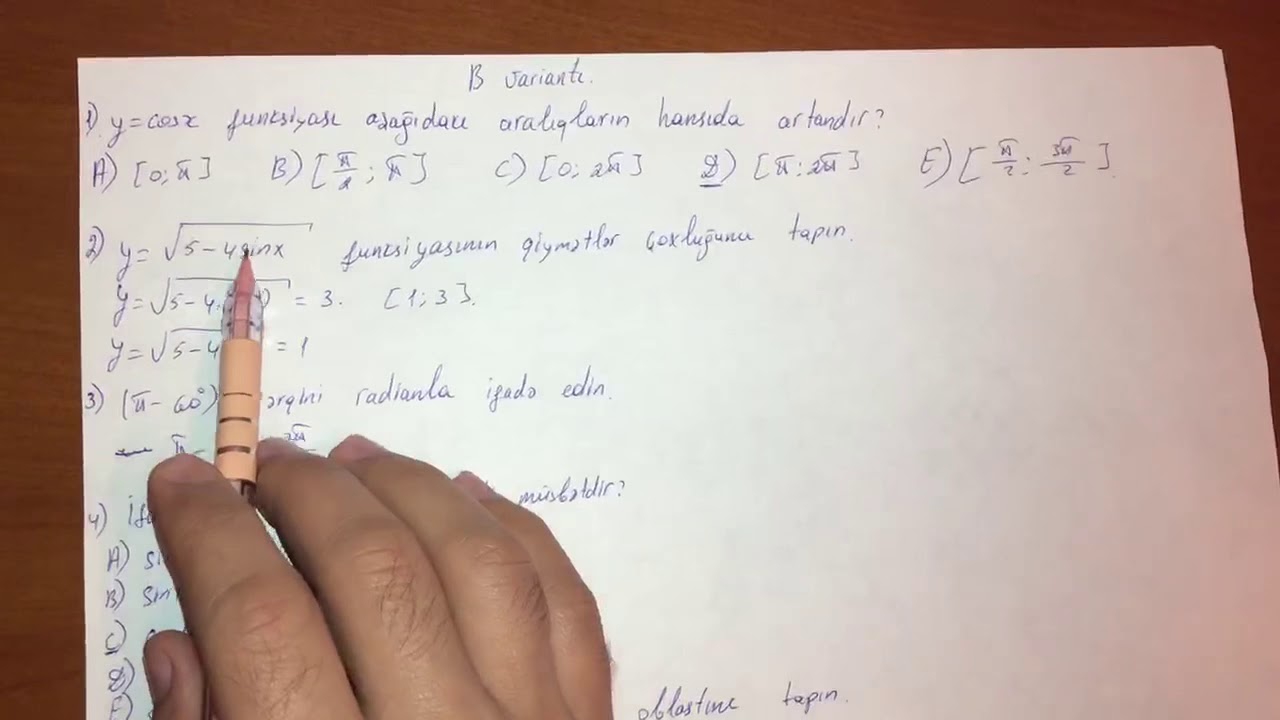 B variantı.
1) y=cosx funksiyası aşağıdakı aralıqların hansıda artandır?
A) [0;π] B) [π/2;π] C) [0;2π] D) [π;2π] E) [π/2;3π/2].
2) y=√5-4sinx funksiyasının qiymətlər çoxluğunu tapın.
y=√5-4 = 3. [1;3].
y=√5-4 = 1
3) (π-60°) radianla ifadə edin.
π
4) müsbətdir?
A)
B) sin
C)
D)
E)
oblastını tapın.